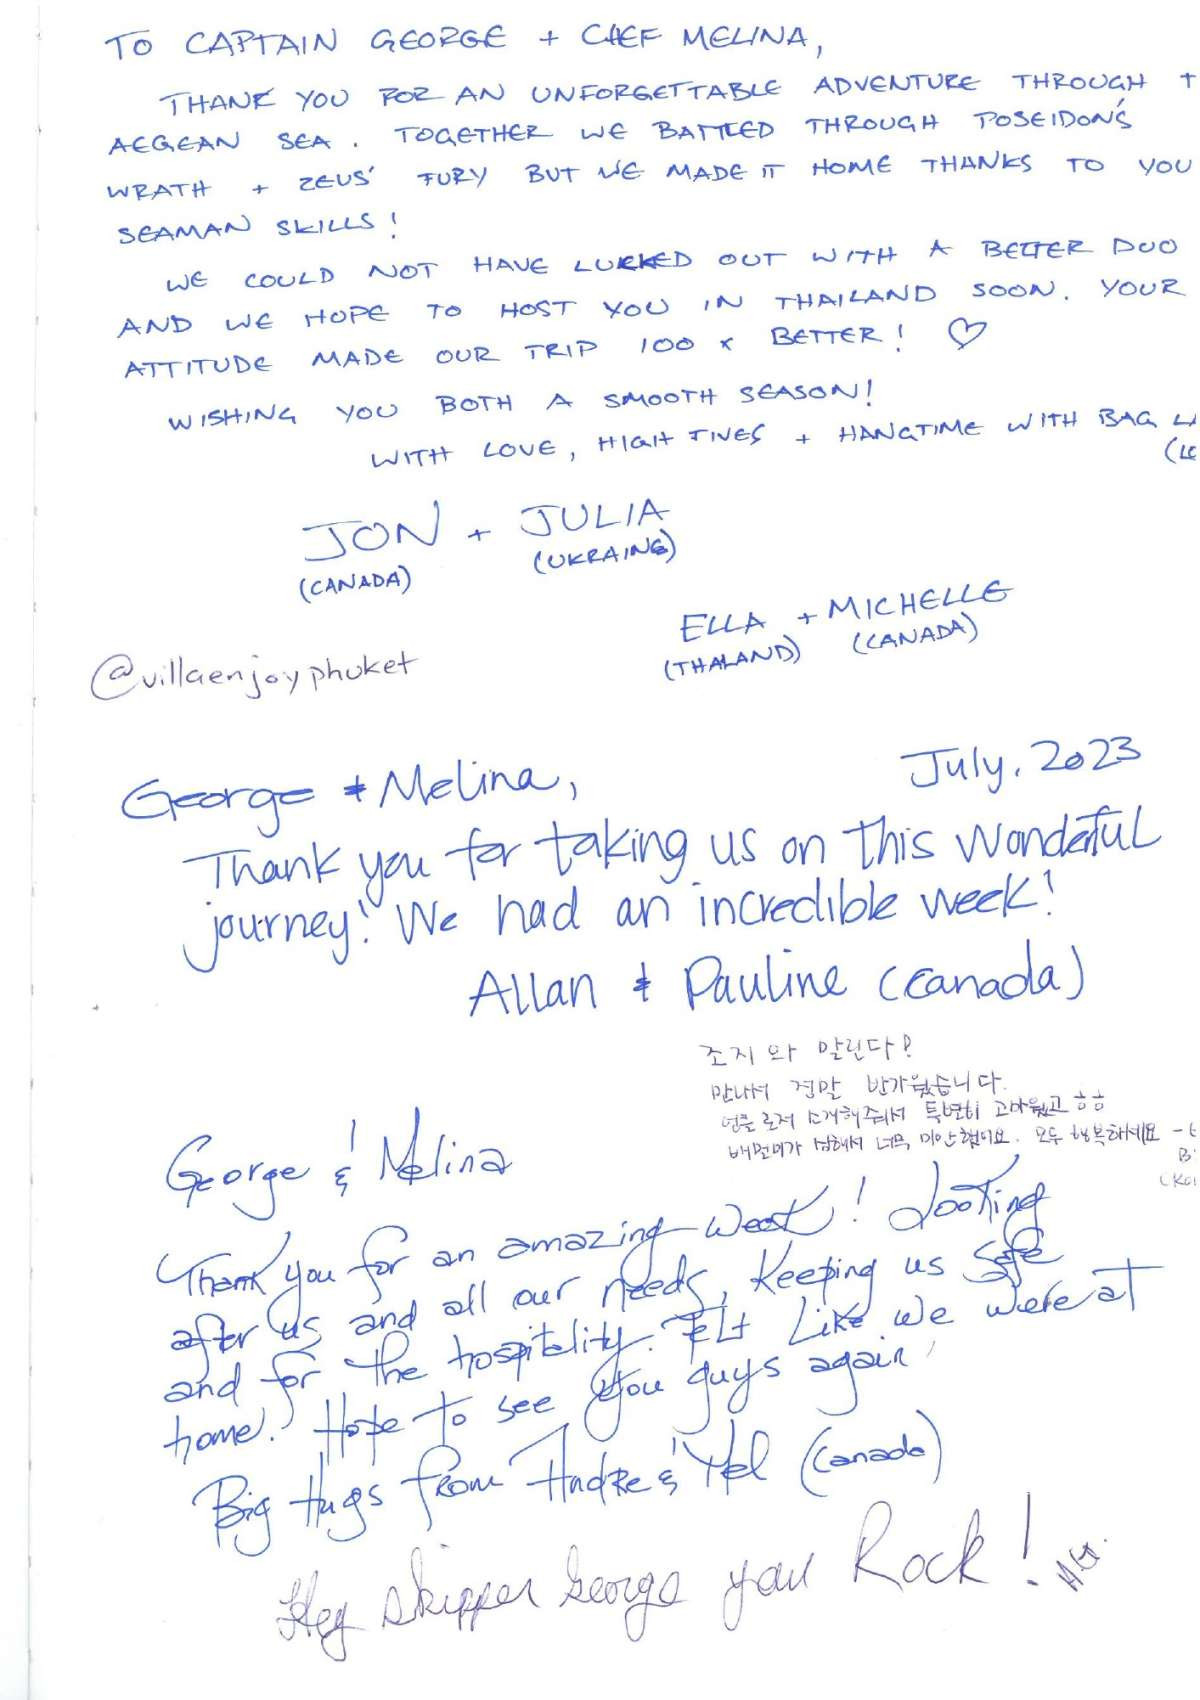 TO CAPTAIN GEORGE + CHEF MELINA,
THANK YOU FOR AN UNFORGETTABLE ADVENTURE THROUGH T
AEGEAN SEA. TOGETHER WE BATTLED THROUGH POSEIDON'S
WRATH + ZEUS' FURY BUT WE MADE IT HOME THANKS TO YOU
SEAMAN SKILLS!
WE COULD NOT HAVE LUCKED OUT WITH A BETTER DUO
AND WE HOPE TO HOST YOU IN THAILAND SOON. YOUR
ATTITUDE MADE OUR TRIP 100 x BETTER! ♡
WISHING YOU BOTH A SMOOTH SEASON!
WITH LOVE, HIGH FIVES + HANGTIME WITH BAG LA
(LE
JON + JULIA
(CANADA) (UKRAINE)
ELLA + MICHELLE
(THALAND) (CANADA)
@villaenjoyphuket
July, 2023
George & Melina,
Thank you for taking us on this wonderful
journey! We had an incredible week!
Allan & Pauline (Canada)
조지와 말린다!
만나서 정말 반가웠습니다.
소개해주셔서 특별히 고마웠고 ㅎㅎ
배멀미가 심해서 너무 미안했어요. 모두 행복하세요
George & Melina
Thank you for an amazing week! Looking
after us and all our needs, Keeping us safe
and for the hospitality. Felt Like we were at
home. Hope to see you guys again!
Big Hugs from Andre & Mel (Canada)
Hey skipper George you Rock! AG.